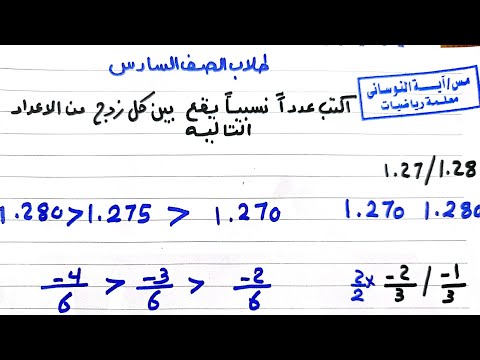 طلاب الصف السادس
مس/آية النوسانى
معلمة رياضيات
اكتب عدداً نسبياً يقع بين كل زوج من الاعداد
التاليه
1.27/1.28
1.280>1.275 > 1.270 1.270 1.280
-4/6 > -3/6 > -2/6 2/2 x -2/3 / -1/3